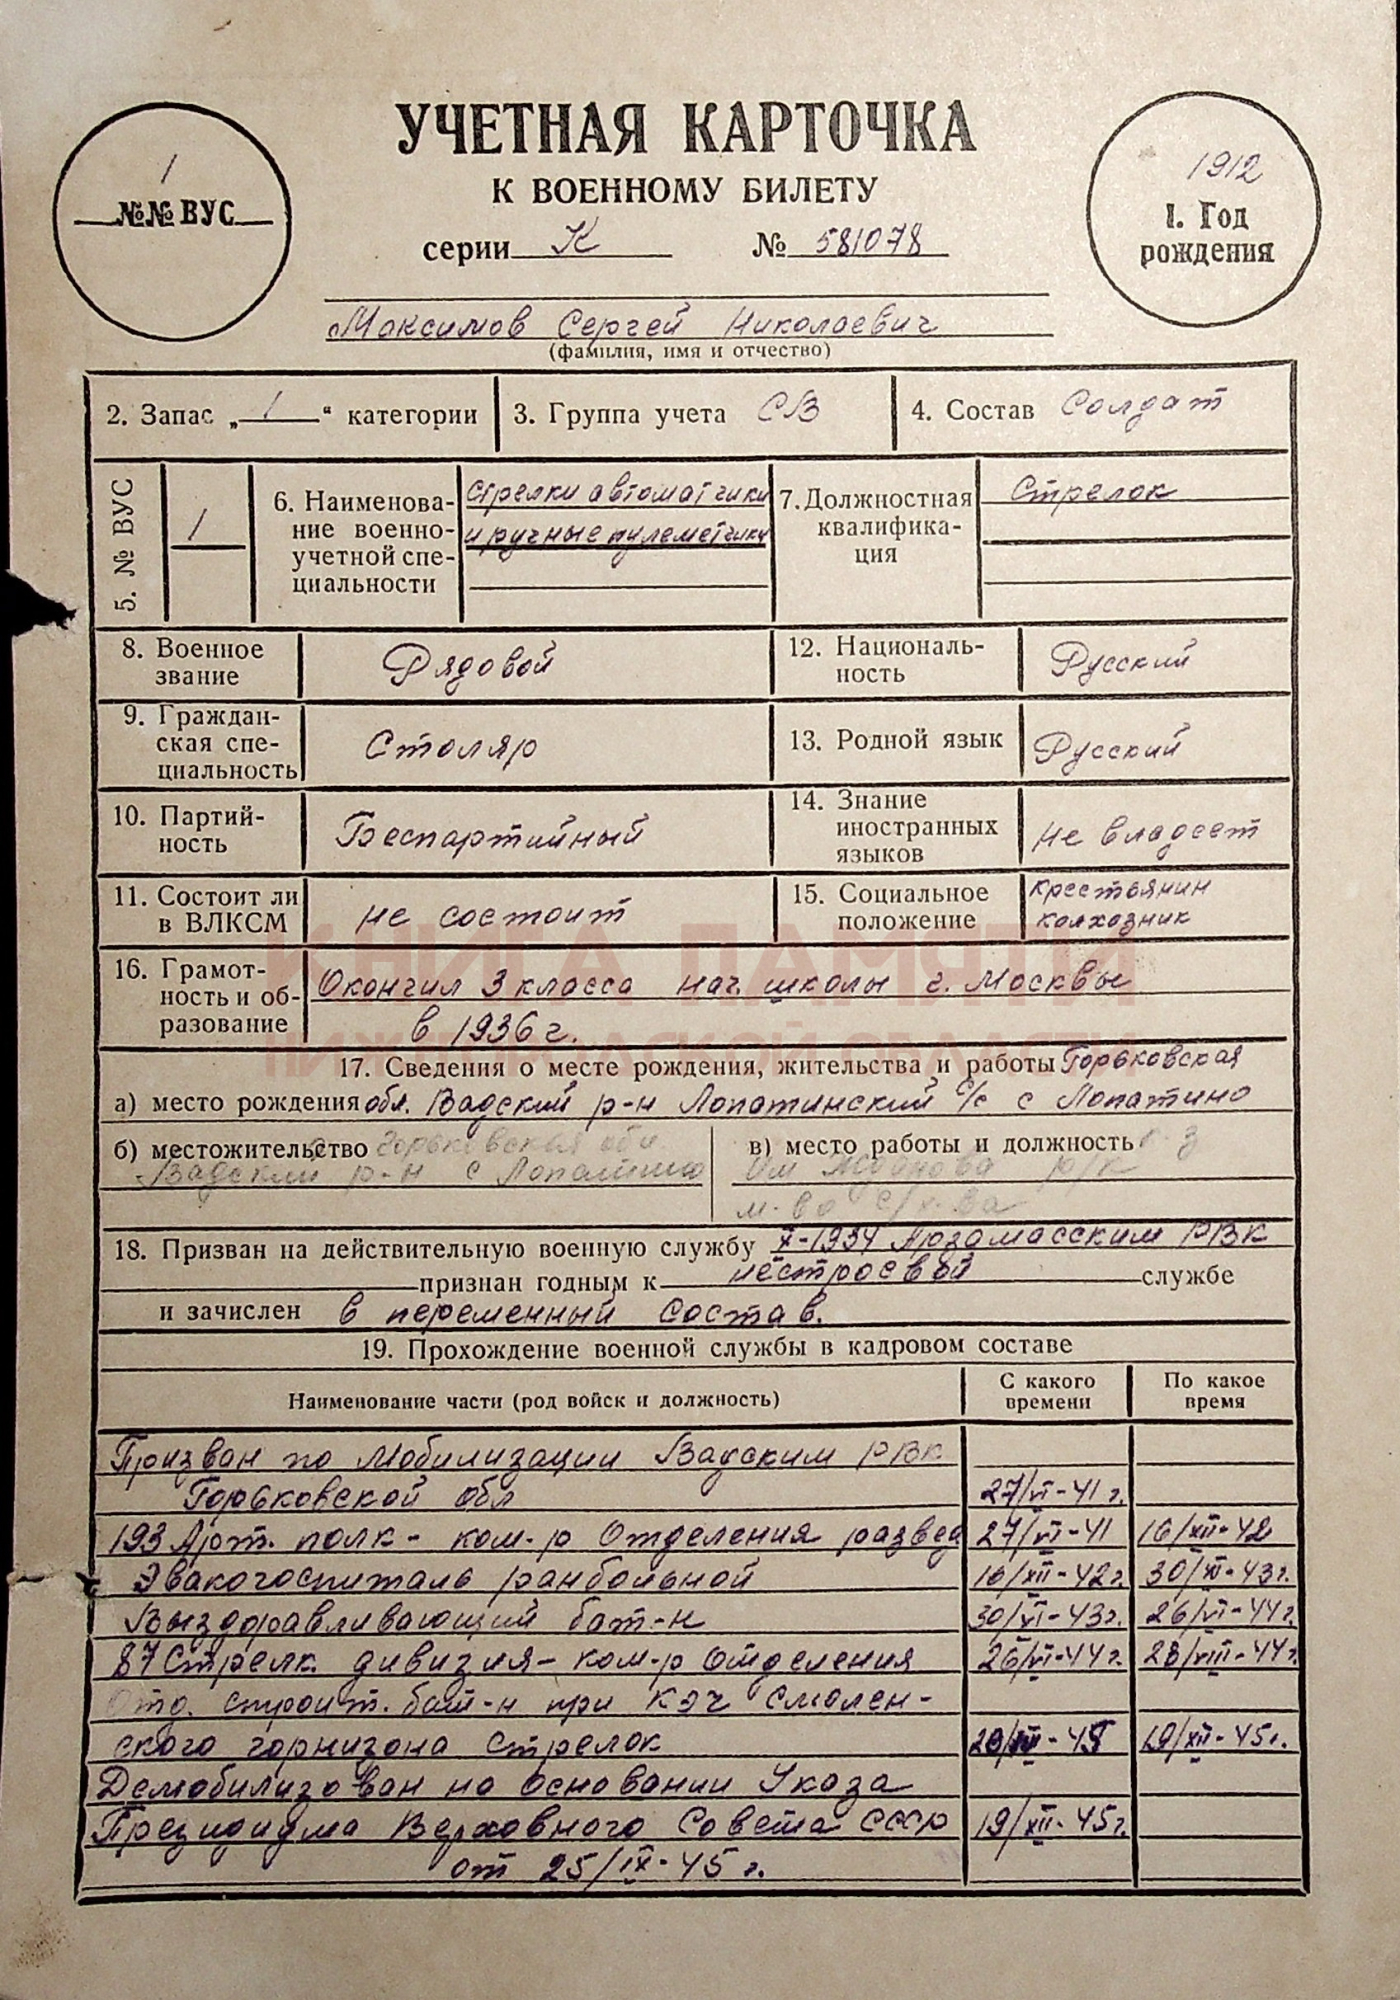 УЧЕТНАЯ КАРТОЧКА
К ВОЕННОМУ БИЛЕТУ
серии К № 581078
1
№№ ВУС
1912
1. Год
рождения
Максимов Сергей Николаевич
(фамилия, имя и отчество)
2. Запас „ 1 “ категории
3. Группа учета СВ
4. Состав Солдат
5. № ВУС
1
6. Наименова-
ние военно-
учетной спе-
циальности
стрелки автоматчики
и ручные пулеметчики
7. Должностная
квалифика-
ция
Стрелок
8. Военное
звание
Рядовой
12. Националь-
ность
Русский
9. Граждан-
ская спе-
циальность
Столяр
13. Родной язык
Русский
10. Партий-
ность
Беспартийный
14. Знание
иностранных
языков
не владеет
11. Состоит ли
в ВЛКСМ
не состоит
15. Социальное
положение
крестьянин
колхозник
КНИГА ПАМЯТИ
НИЖЕГОРОДСКОЙ ОБЛАСТИ
16. Грамот-
ность и об-
разование
Окончил 3 класса нач. школы г. Москвы
в 1936 г.
17. Сведения о месте рождения, жительства и работы Горьковская
а) место рождения обл. Вадский р-н Лопатинский с/с с Лопатино
б) местожительство Горьковская обл
Вадский р-н с Лопатино
в) место работы и должность к-з
им Жданова р/к
м-во с/х-ва
18. Призван на действительную военную службу X-1934 Арзамасским РВК
признан годным к нестроевой службе
и зачислен в переменный состав.
19. Прохождение военной службы в кадровом составе
Наименование части (род войск и должность)
С какого
времени
По какое
время
Призван по мобилизации Вадским РВК
Горьковской обл 27/VI-41 г.
193 Арт. полк - ком-р Отделения развед 27/VI-41 16/XII-42
Эвакогоспиталь ранбольной 16/XII-42 г. 30/XI-43 г.
Выздоравливающий бат-н 30/VI-43 г. 26/VI-44 г.
87 Стрелк. дивизия - ком-р отделения 26/VI-44 г. 28/VIII-44 г.
Отд. строит. бат-н при КЭЧ Смолен-
ского горнизона стрелок 19/XII-45 г.
Демобилизован на основании Указа
Президиума Верховного Совета СССР 19/XII-45 г.
от 25/IX-45 г.